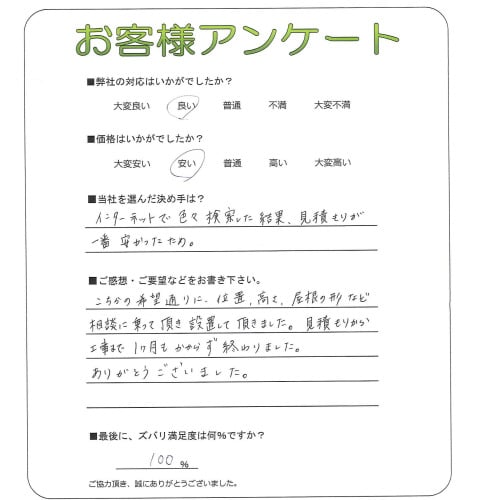 お客様アンケート
■弊社の対応はいかがでしたか?
大変良い 良い 普通 不満 大変不満
■価格はいかがでしたか?
大変安い 安い 普通 高い 大変高い
■当社を選んだ決め手は?
インターネットで色々検索した結果、見積もりが
一番安かったため。
■ご感想・ご要望などをお書き下さい。
こちらの希望通りに、位置、高さ、屋根の形など
相談に乗って頂き設置して頂きました。見積もりから
工事まで1ヶ月もかからず終わりました。
ありがとうございました。
■最後に、ズバリ満足度は何%ですか?
100 %
ご協力頂き、誠にありがとうございました。